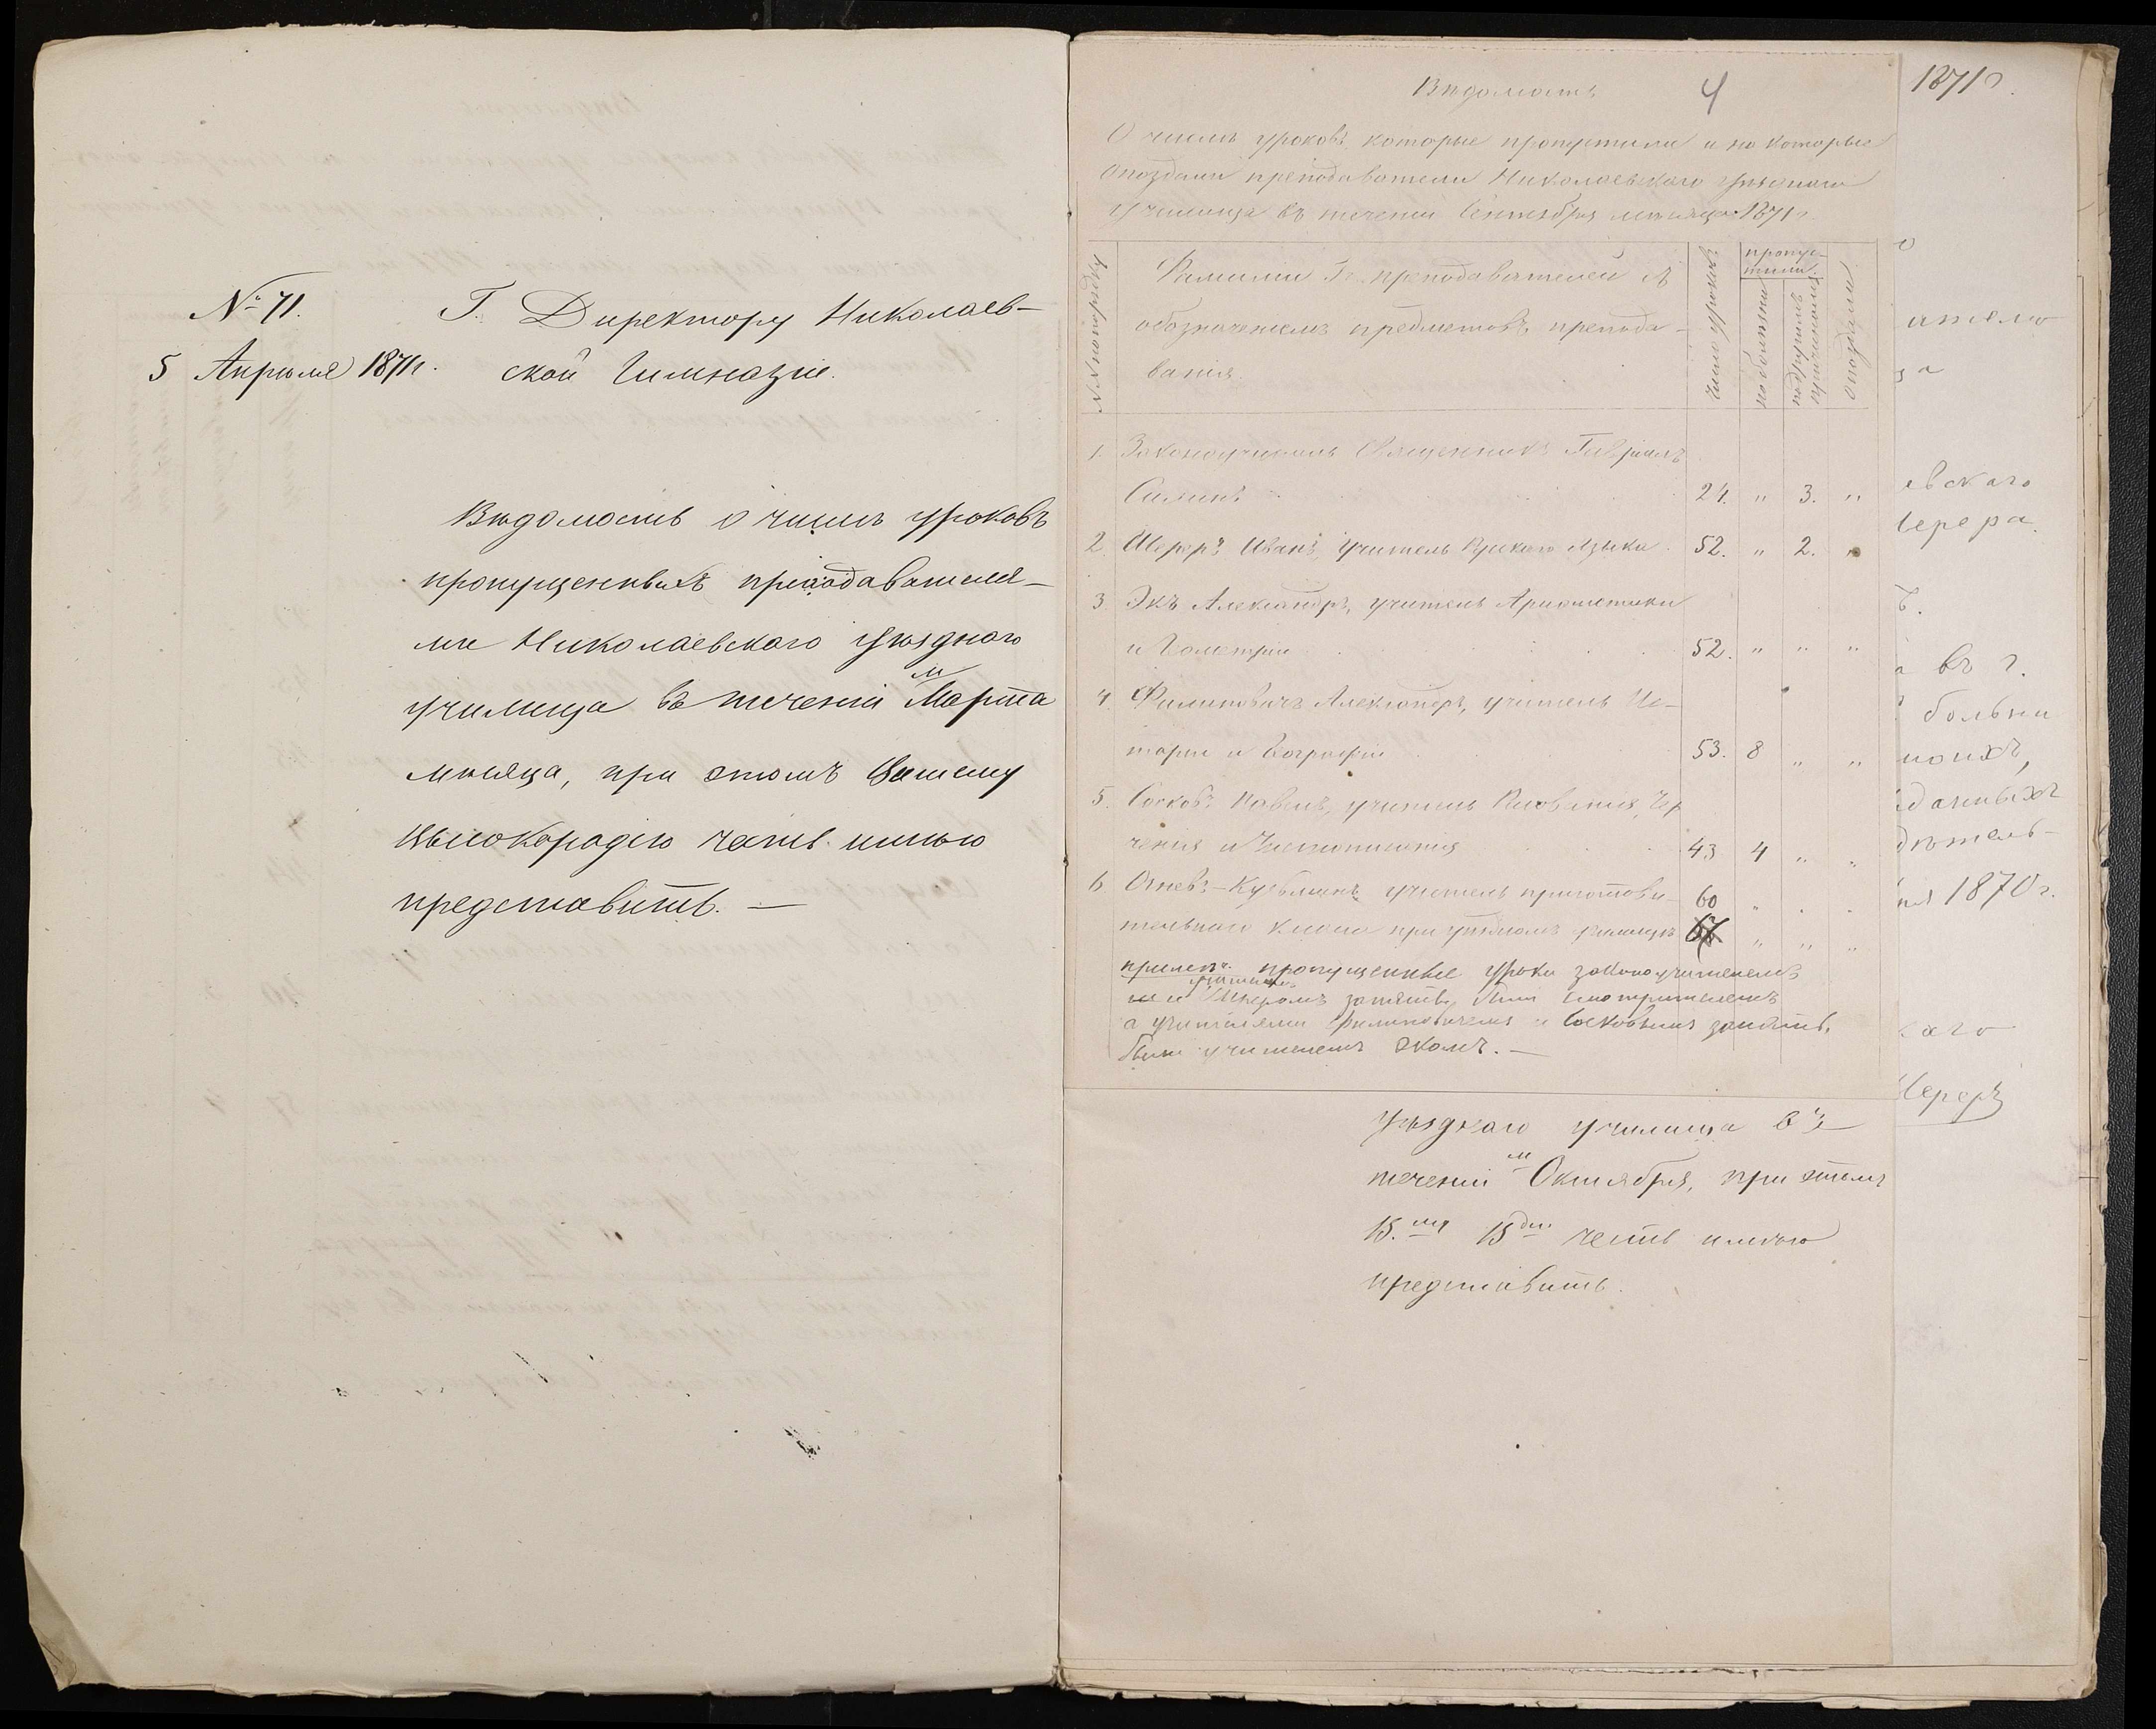 № 71.
5 Апрѣля 1871 г.
Г. Директору Николаев-
ской Гимназіи.
Вѣдомость о числѣ уроковъ
пропущенныхъ преподавателя-
ми Николаевскаго Уѣзднаго
училища въ теченіи м Марта
мѣсяца, при этомъ Вашему
Высокородію честь имѣю
представить. —
Вѣдомость 4
О числѣ уроковъ которые пропустили и на которые
опоздали преподаватели Николаевскаго Уѣзднаго
училища въ теченіи Сентября мѣсяца 1871 г.
№№ по порядку
Фамиліи Гг. преподавателей съ
обозначеніемъ предметовъ препода-
ванія.
Число уроковъ
пропус-
тили.
по болѣзни
по другимъ
причинамъ
опоздали
1. Законоучитель Священникъ Гавріилъ
24. " 3. "
2. Шереръ Иванъ, учитель Русскаго языка. 52. " 2. "
3. Экъ Александръ, учитель Ариѳметики
и Геометріи 52. " " "
4. Филиповичъ Александръ, учитель Ис-
торіи и Географіи 53. 8 " "
5. Сосковъ Павелъ, учитель Рисованія, Чер
ченія и Чистописанія 43 4 " "
6. учитель приготови- 60 " " "
тельнаго класса при уѣздномъ училищѣ " " "
примѣч. пропущенные уроки законоучителемъ
и Шереромъ заняты были смотрителемъ
а учителями Филиповичемъ и Сосковымъ заняты
были учителемъ Экомъ. —
Уѣзднаго училища въ
теченіи м Октября, при этомъ
В. му В дію честь имѣю
представить.
1871 г.
о
ателю
за
евскаго
Шерера.
ъ.
а въ г.
больни
моихъ,
данныхъ
дѣтель-
ня 1870 г.
каго
Шереръ